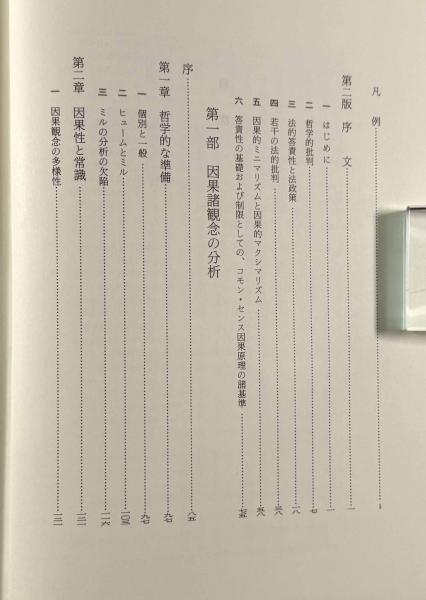 凡例
第二版 序文……一
一 はじめに……一
二 哲学的批判……七
三 法的答責性と法政策……一八
四 若干の法的批判……二八
五 因果的ミニマリズムと因果的マクシマリズム……
六 答責性の基礎および制限としての、コモン・センス因果原理の諸基準……
第一部 因果諸観念の分析
序……八五
第一章 哲学的な準備……九七
一 個別と一般……九七
二 ヒュームとミル……一〇三
三 ミルの分析の欠陥……一一六
第二章 因果性と常識……一三一
一 因果観念の多様性……一三一